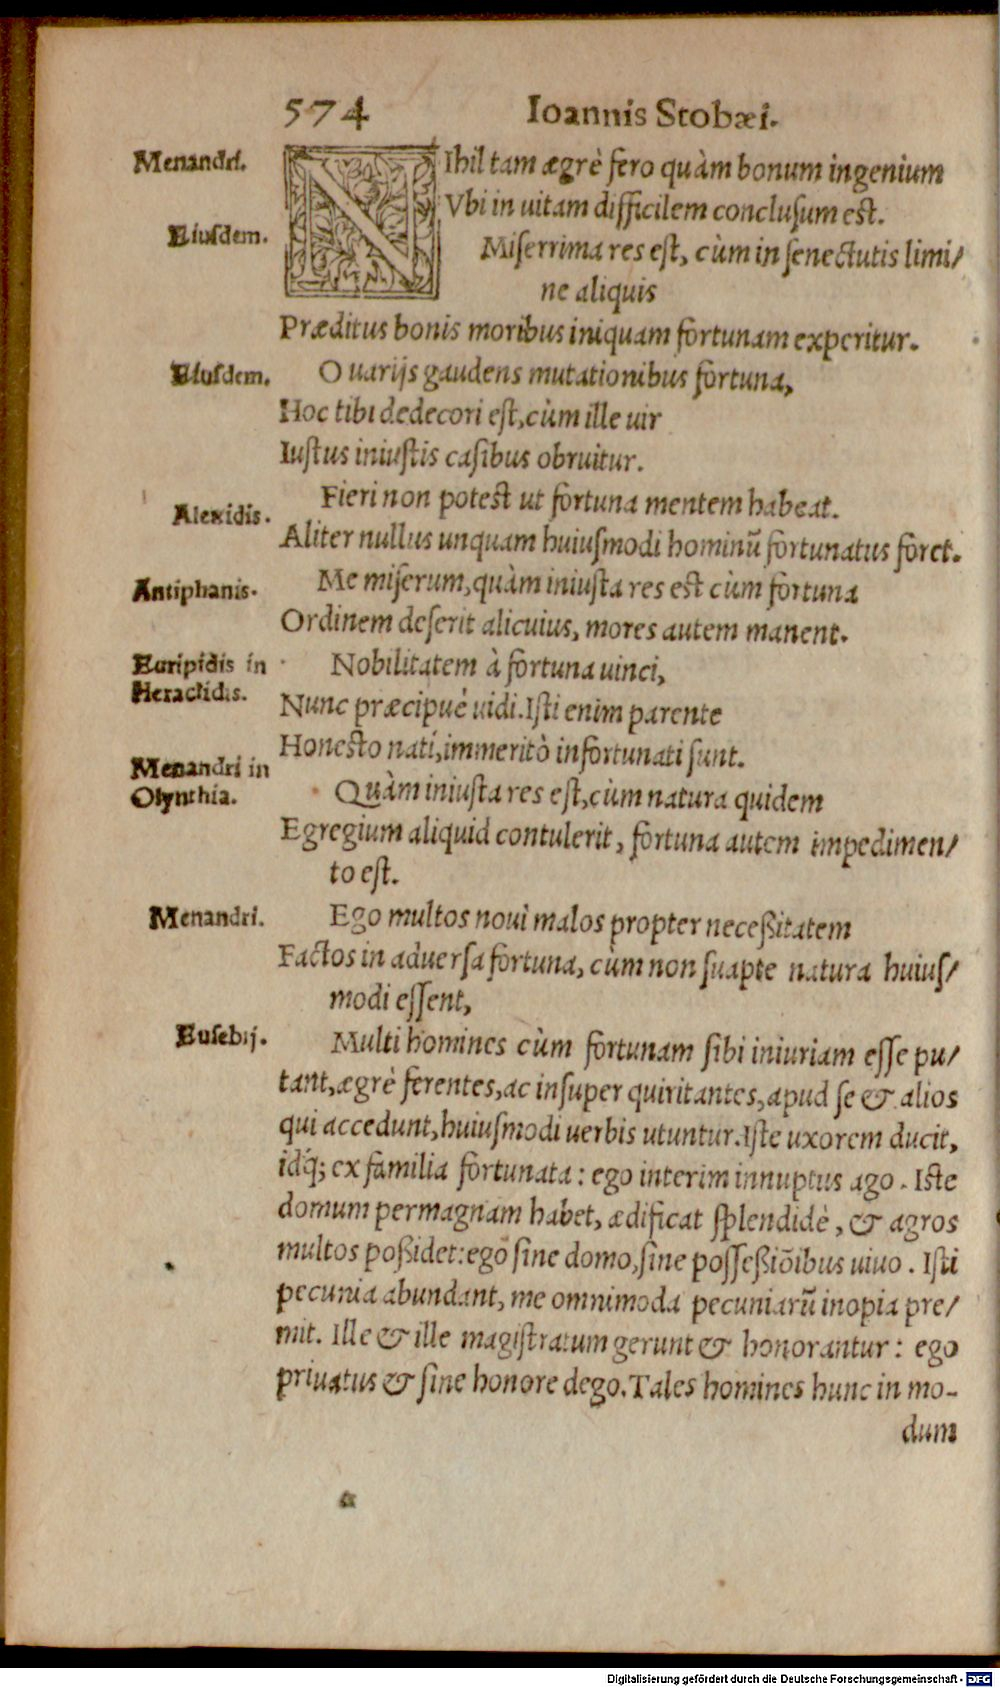 574 Ioannis Stobæi.
Menandri. NIhil tam ægrè fero quàm bonum ingenium
Vbi in uitam difficilem conclusum est.
Eiusdem. Miserrima res est, cùm in senectutis limi/
ne aliquis
Præditus bonis moribus iniquam fortunam experitur.
Eiusdem. O uarijs gaudens mutationibus fortuna,
Hoc tibi dedecori est, cùm ille uir
Iustus iniustis casibus obruitur.
Alexidis. Fieri non potest ut fortuna mentem habeat.
Aliter nullus unquam huiusmodi hominũ fortunatus foret.
Antiphanis. Me miserum, quàm iniusta res est cùm fortuna
Ordinem deserit alicuius, mores autem manent.
Euripidis in Nobilitatem à fortuna uinci,
Heraclidis. Nunc præcipuè uidi. Isti enim parente
Honesto nati, immeritò infortunati sunt.
Menandri in
Olynthia. Quàm iniusta res est, cùm natura quidem
Egregium aliquid contulerit, fortuna autem impedimen/
to est.
Menandri. Ego multos noui malos propter necessitatem
Factos in aduersa fortuna, cùm non suapte natura huius/
modi essent,
Eusebij. Multi homines cùm fortunam sibi iniuriam esse pu/
tant, ægrè ferentes, ac insuper quiritantes, apud se & alios
qui accedunt, huiusmodi uerbis utuntur. Iste uxorem ducit,
idq́; ex familia fortunata: ego interim innuptus ago. Iste
domum permagnam habet, ædificat splendidè, & agros
multos possidet: ego sine domo, sine possessiõibus uiuo. Isti
pecunia abundant, me omnimoda pecuniarũ inopia pre/
mit. Ille & ille magistratum gerunt & honorantur: ego
priuatus & sine honore dego. Tales homines hunc in mo-
dum
Digitalisierung gefördert durch die Deutsche Forschungsgemeinschaft - DFG